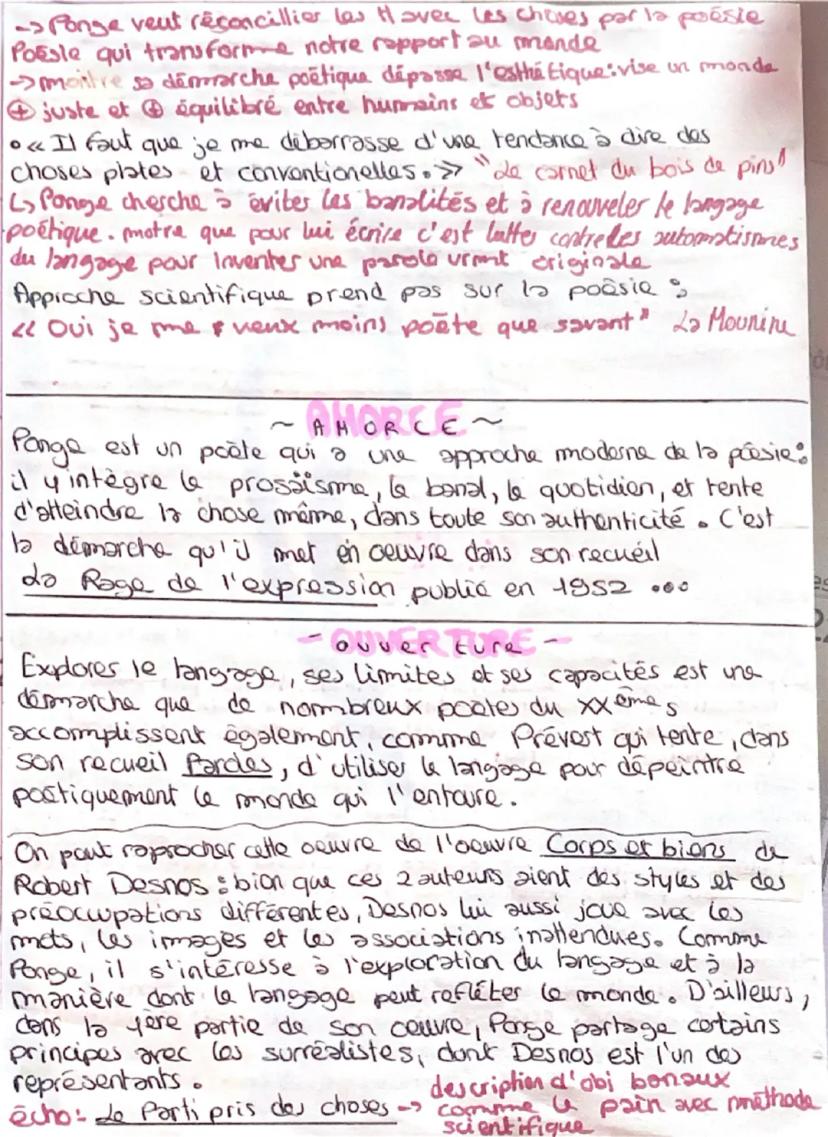 -> Ponge veut réconcillier les H avec les choses par la poésie
Poésie qui transforme notre rapport au monde
-> montre sa démarche poétique dépasse l'esthétique : vise un monde
⊕ juste et ⊕ équilibré entre humains et objets
• « Il faut que je me débarrasse d'une tendance à dire des
choses plates et conventionelles. » "Le carnet du bois de pins"
↳ Ponge cherche à éviter les banalités et à renouveler le langage
poétique. motre que pour lui écrire c'est lutter contre les automatismes
du langage pour inventer une parole vrmt originale
Approche scientifique prend pas sur la poésie :
« Oui je me veux moins poète que savant" La Mounine
~ AMORCE ~
Ponge est un poète qui a une approche moderne de la poésie :
il y intègre le prosaïsme, le banal, le quotidien, et tente
d'atteindre la chose même, dans toute son authenticité. C'est
la démarche qu'il met en oeuvre dans son recueil
La Rage de l'expression publié en 1952 ...
- Ouverture -
Explorer le langage, ses limites et ses capacités est une
démarche que de nombreux poètes du XXème s
accomplissent également, comme Prévert qui tente, dans
son recueil Paroles, d'utiliser le langage pour dépeintre
poétiquement le monde qui l'entoure.
On peut raprocher cette oeuvre de l'oeuvre Corps et biens de
Robert Desnos : bien que ces 2 auteurs aient des styles et des
préoccupations différentes, Desnos lui aussi joue avec les
mots, les images et les associations inattendues. Comme
Ponge, il s'intéresse à l'exploration du langage et à la
manière dont le langage peut refléter le monde. D'ailleurs,
dans la 1ère partie de son oeuvre, Ponge partage certains
principes avec les surréalistes, dont Desnos est l'un des
représentants.
écho : Le Parti pris des choses -> description d'obj bonaux
comme le pain avec méthode
scientifique